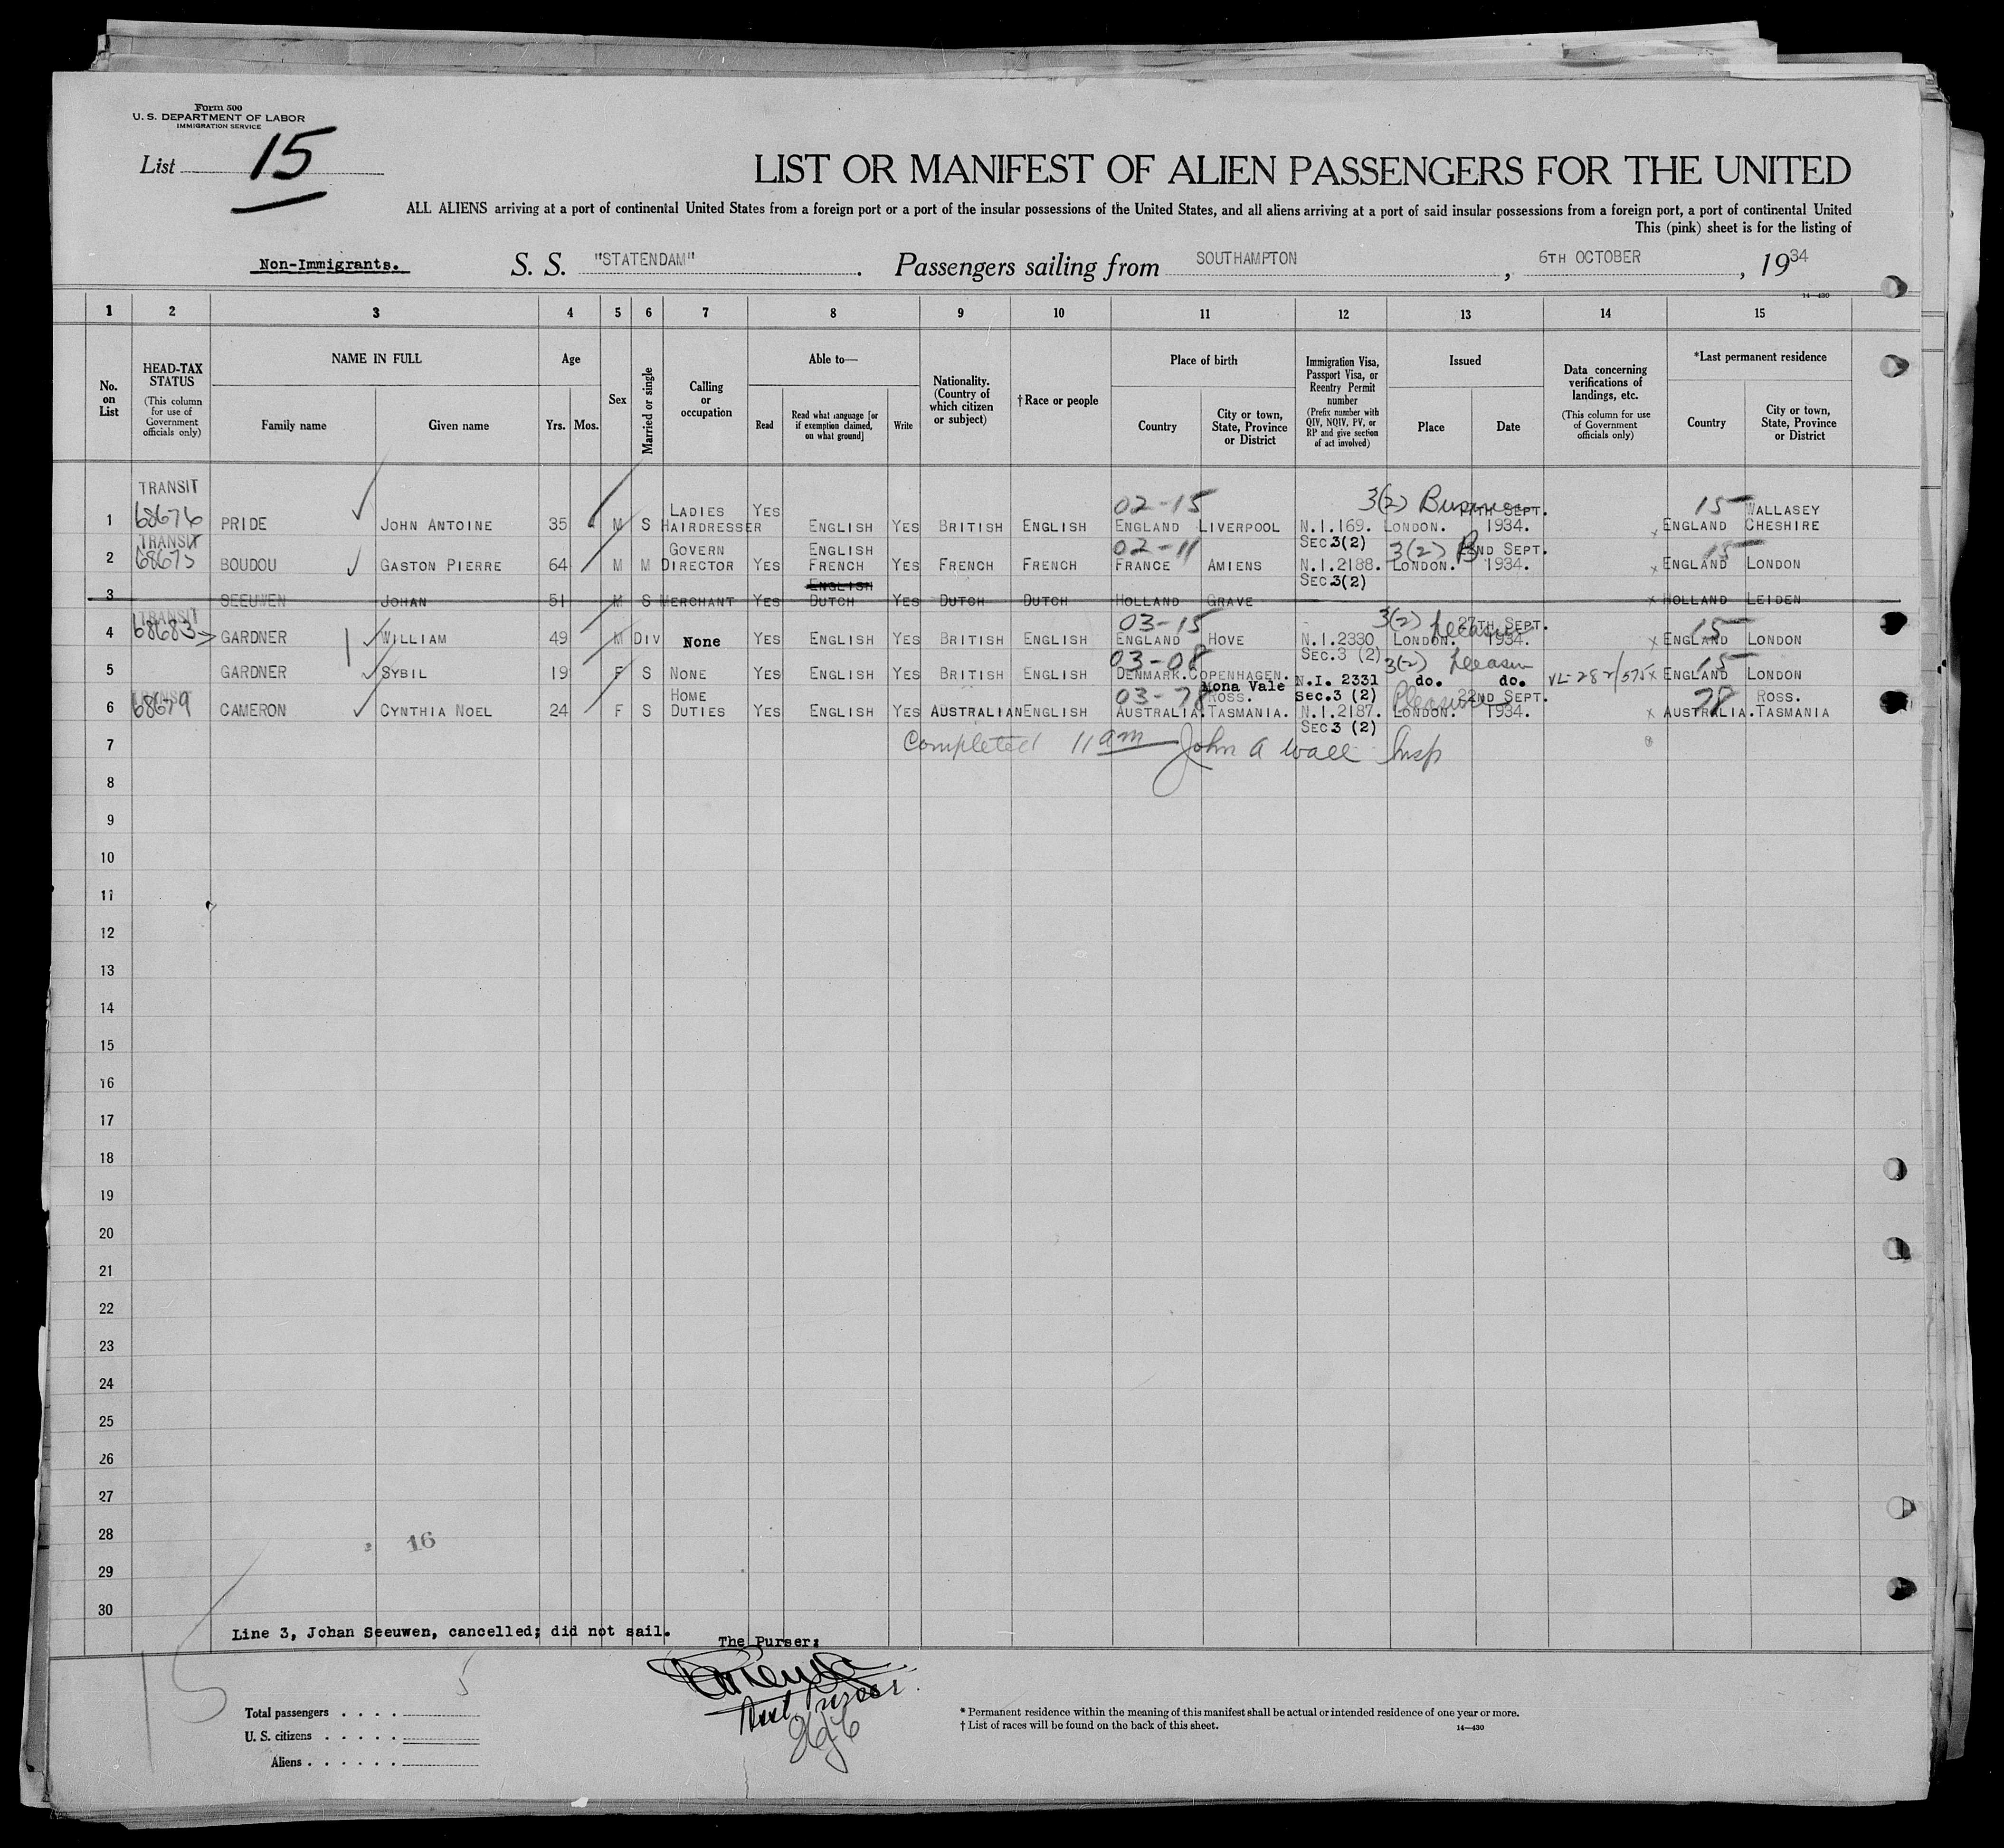 Form 500
U. S. DEPARTMENT OF LABOR
IMMIGRATION SERVICE
List 15
LIST OR MANIFEST OF ALIEN PASSENGERS FOR THE UNITED
ALL ALIENS arriving at a port of continental United States from a foreign port or a port of the insular possessions of the United States, and all aliens arriving at a port of said insular possessions from a foreign port, a port of continental United
This (pink) sheet is for the listing of
Non-Immigrants. S. S. "STATENDAM" Passengers sailing from SOUTHAMPTON, 6TH OCTOBER, 1934
14—430
1 2 3 4 5 6 7 8 9 10 11 12 13 14 15
No. on List
HEAD-TAX STATUS (This column for use of Government officials only)
NAME IN FULL
Family name Given name
Age
Yrs. Mos.
Sex
Married or single
Calling or occupation
Able to—
Read Read what language [or if exemption claimed, on what ground] Write
Nationality. (Country of which citizen or subject)
†Race or people
Place of birth
Country City or town, State, Province or District
Immigration Visa, Passport Visa, or Reentry Permit number (Prefix number with QIV, NQIV, PV, or RP and give section of act involved)
Issued
Place Date
Data concerning verifications of landings, etc. (This column for use of Government officials only)
*Last permanent residence
Country City or town, State, Province or District
TRANSIT
LADIES YES 02-15 3(2) Business 15 WALLASEY
1 68676 PRIDE JOHN ANTOINE 35 M S HAIRDRESSER ENGLISH YES BRITISH ENGLISH ENGLAND LIVERPOOL N.I.169. LONDON. 1934. ENGLAND CHESHIRE
SEC 3(2)
TRANSIT GOVERN ENGLISH 02-11 3(2) B 22ND SEPT. 15
2 68675 BOUDOU GASTON PIERRE 64 M M DIRECTOR YES FRENCH YES FRENCH FRENCH FRANCE AMIENS N.I.2188. LONDON. 1934. x ENGLAND LONDON
SEC 3(2)
ENGLISH
3 SEEUWEN JOHAN 51 M S MERCHANT YES DUTCH YES DUTCH DUTCH HOLLAND GRAVE x HOLLAND LEIDEN
TRANSIT 03-15 3(2) Pleasure 27TH SEPT. 15
4 68683 GARDNER WILLIAM 49 M DIV None YES ENGLISH YES BRITISH ENGLISH ENGLAND HOVE N.I.2330 LONDON. 1934. x ENGLAND LONDON
SEC.3 (2)
03-08 3(2) Pleasure 15
5 GARDNER SYBIL 19 F S NONE YES ENGLISH YES BRITISH ENGLISH DENMARK. COPENHAGEN. N.I. 2331 do. do. VL-282/575 x ENGLAND LONDON
Sec.3 (2)
TRANSIT HOME 03-78 Mona Vale ROSS. Pleasure 22ND SEPT. 78 ROSS.
6 68679 CAMERON CYNTHIA NOEL 24 F S DUTIES YES ENGLISH YES AUSTRALIAN ENGLISH AUSTRALIA. TASMANIA. N.I.2187. LONDON. 1934. x AUSTRALIA. TASMANIA
SEC 3 (2)
7 Completed 11 am John A Wall Insp
8
9
10
11
12
13
14
15
16
17
18
19
20
21
22
23
24
25
26
27
28 16
29
30
Line 3, Johan Seeuwen, cancelled; did not sail.
The Purser:
15
5
Total passengers
U. S. citizens
Aliens
* Permanent residence within the meaning of this manifest shall be actual or intended residence of one year or more.
† List of races will be found on the back of this sheet.
14—430